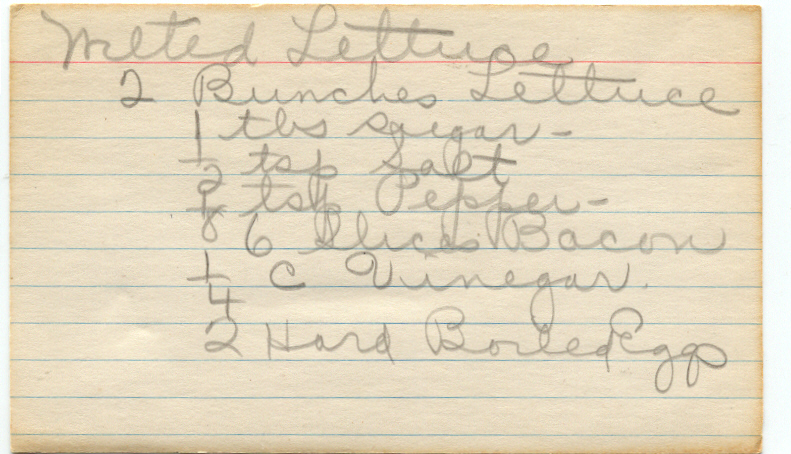 Wilted Lettuce
2 Bunches Lettuce
1 tbs sugar -
1/2 tsp Salt
1/8 tsp Pepper -
6 Slices Bacon
1/4 C Vinegar.
2 Hard Boiled Eggs